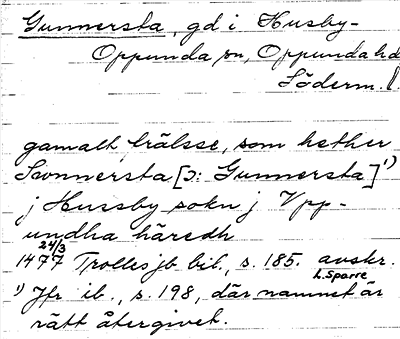 Gunnersta, gd i Husby-
Oppunda sn, Oppunda hd
Söderm. l.
gamalt frälsse, som hether
Swnnersta [ɔ: Gunnersta]¹⁾
j Hussby sokn j Vpp-
undha häredh
24/3
1477 Trolles jb bil., s. 185. avskr.
L. Sparre
¹⁾ Jfr ib., s. 198, där namnet är
rätt återgivet.